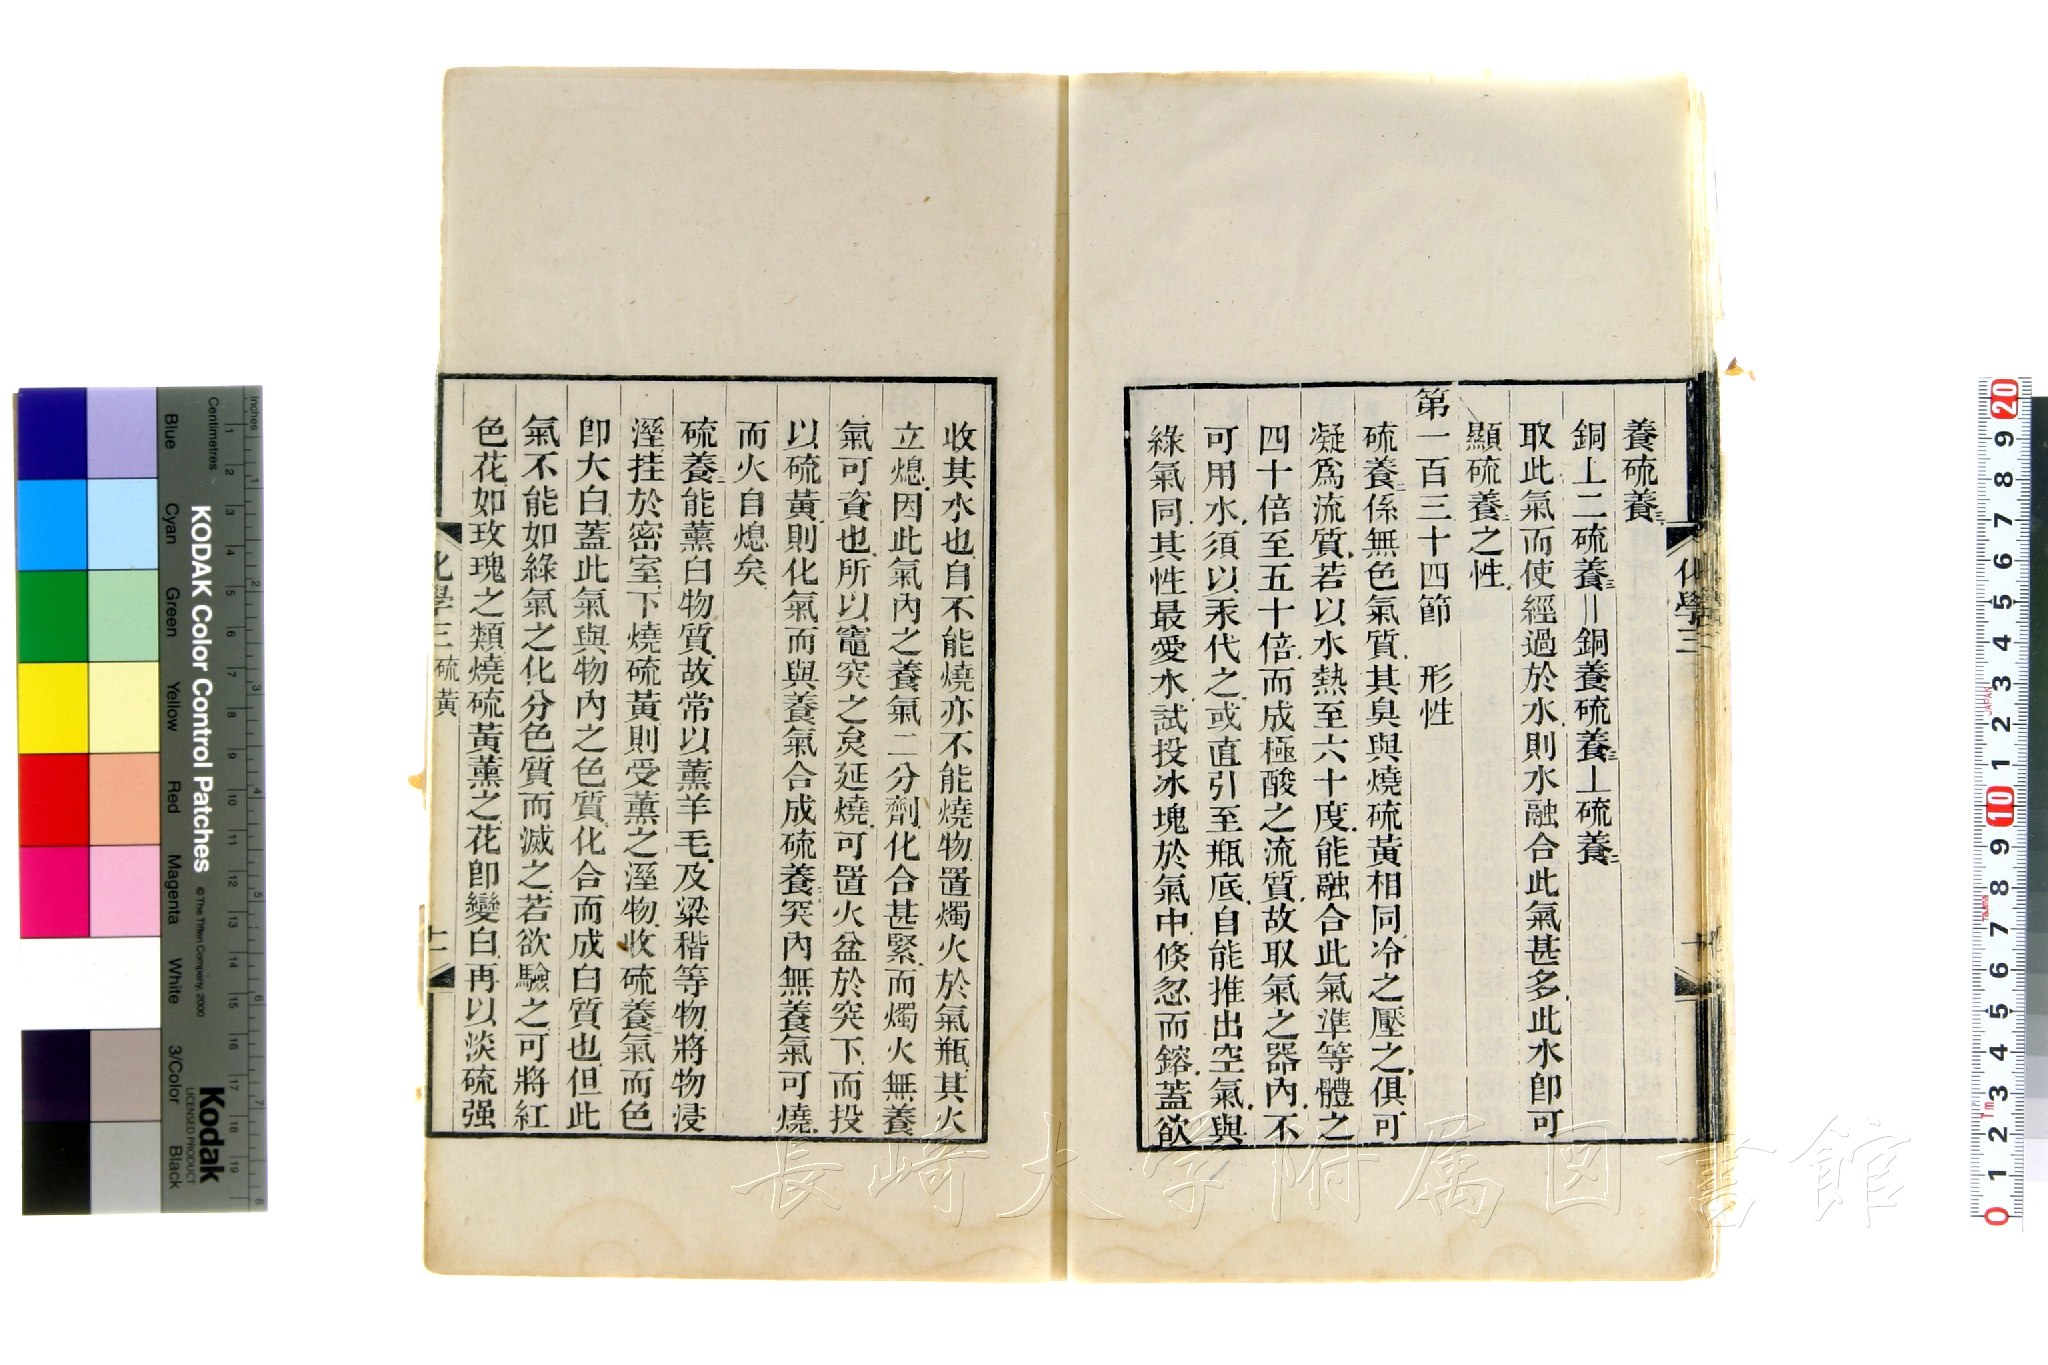 養硫養三
銅上二硫養三=銅養硫養三上硫養二
取此氣而使經過於水則水融合此氣甚多此水卽可
顯硫養二之性
第一百三十四節 形性
硫養二係無色氣質其臭與燒硫黃相同冷之壓之俱可
凝爲流質若以水熱至六十度能融合此氣準等體之
四十倍至五十倍而成極酸之流質故取氣之器內不
可用水須以汞代之或直引至瓶底自能推出空氣與
綠氣同其性最愛水試投冰塊於氣中倐忽而鎔蓋欲
化學三
收其水也自不能燒亦不能燒物置燭火於氣瓶其火
立熄因此氣內之養氣二分劑化合甚緊而燭火無養
氣可資也所以竈突之炱延燒可置火盆於突下而投
以硫黃則化氣而與養氣合成硫養二突內無養氣可燒
而火自熄矣
硫養二能薰白物質故常以薰羊毛及粱稭等物將物浸
溼挂於密室下燒硫黃則受薰之溼物收硫養二氣而色
卽大白蓋此氣與物內之色質化合而成白質也但此
氣不能如綠氣之化分色質而滅之若欲驗之可將紅
色花如玫瑰之類燒硫黃薰之花卽變白再以淡硫强
化學三 硫黃
十一
長崎大学附属図書館
KODAK Color Control Patches
© The Tiffen Company, 2000
Kodak
LICENSED PRODUCT
Inches
Centimetres
Blue
Cyan
Green
Yellow
Red
Magenta
White
3/Color
Black
JAPAN